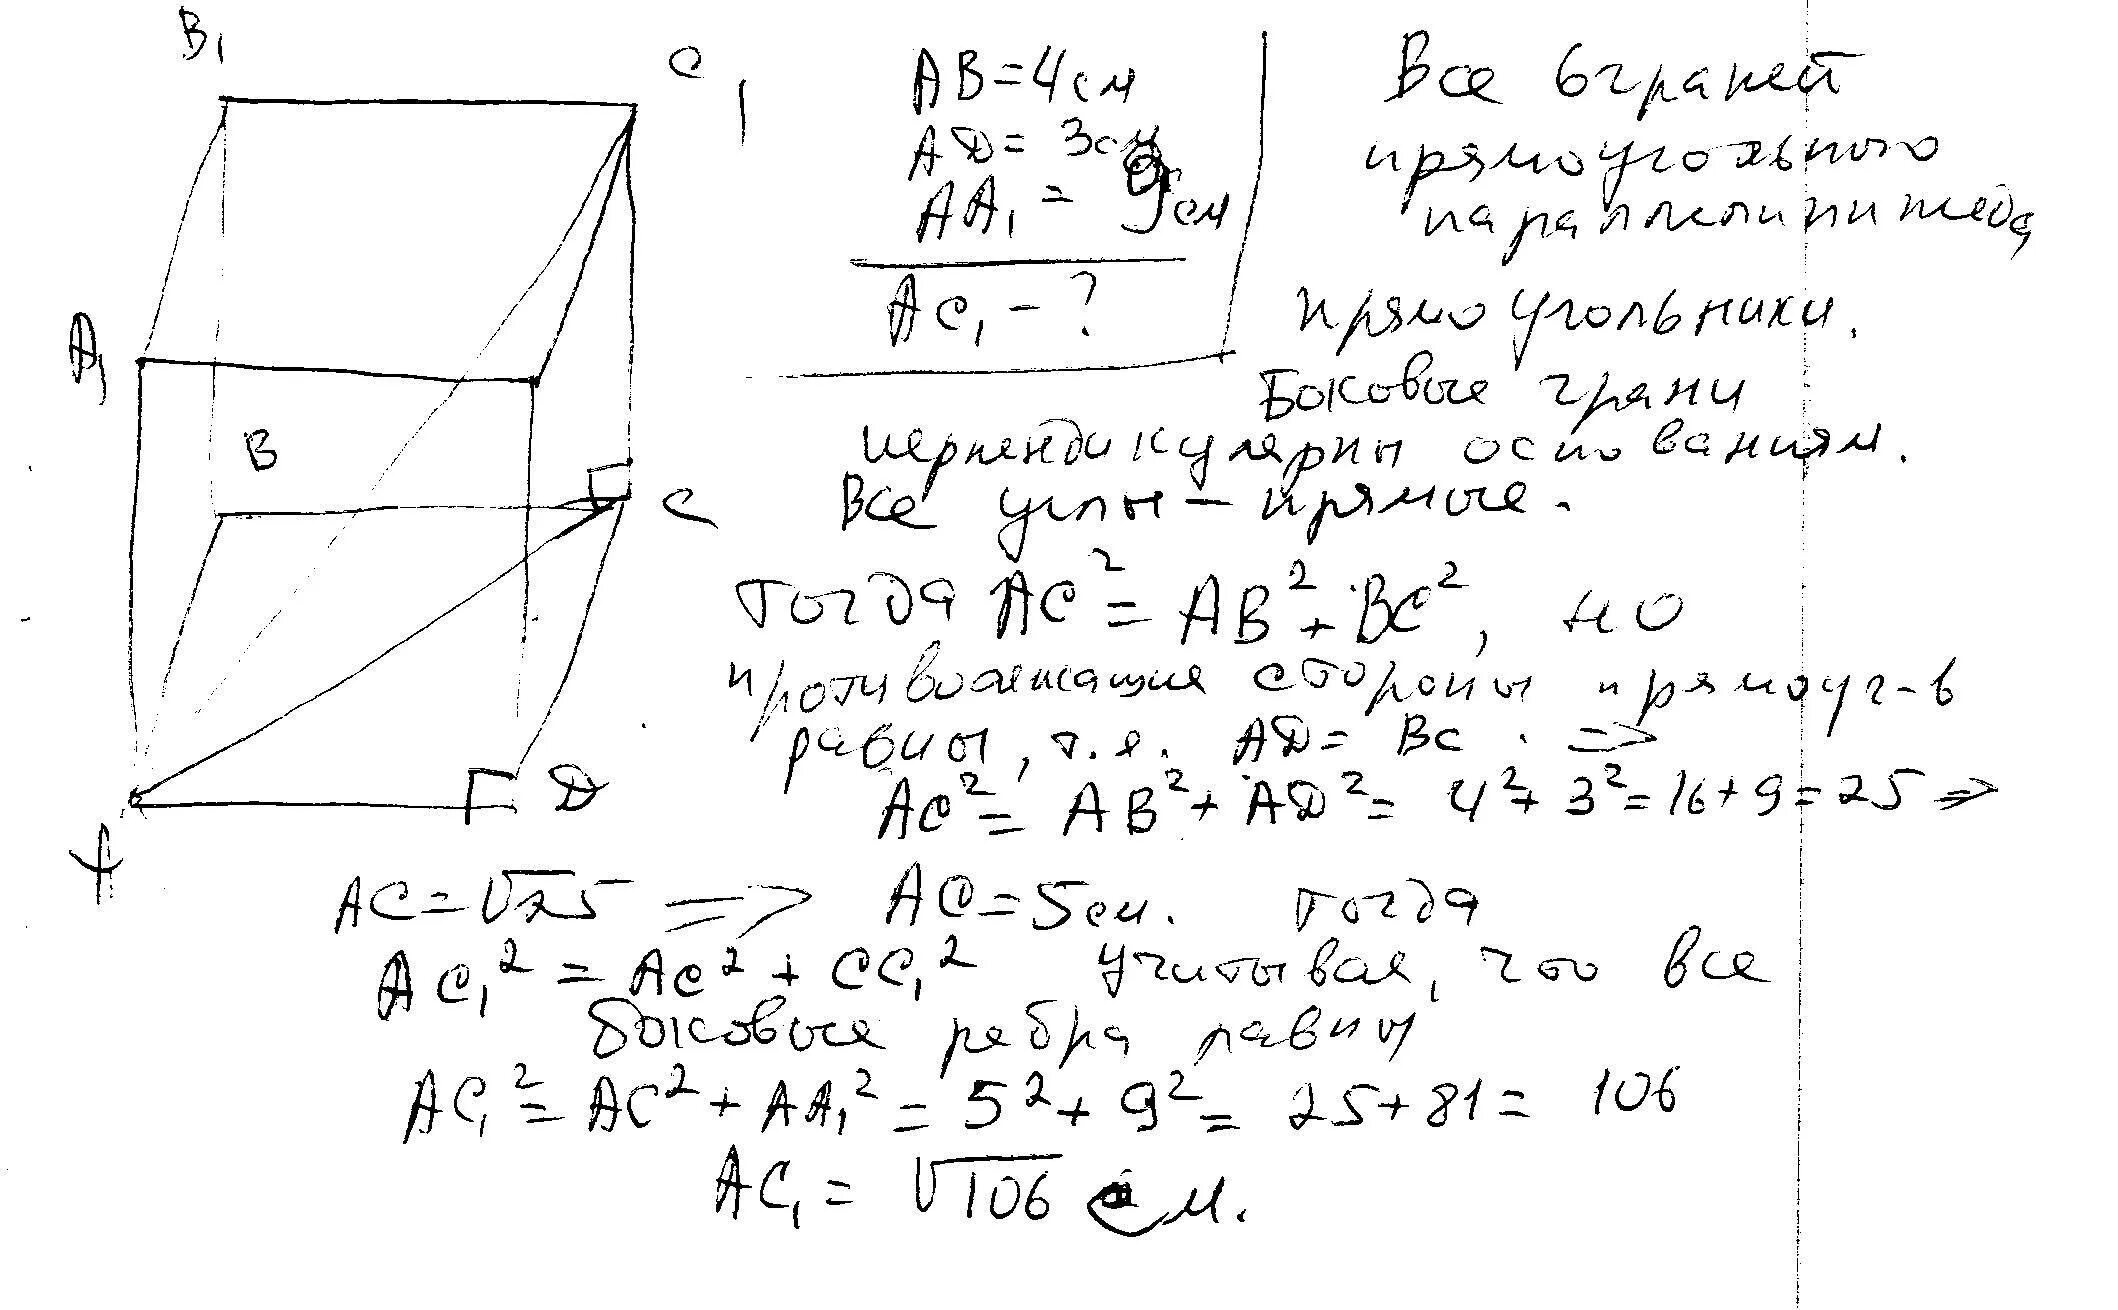 B₁
C₁
A₁
B
C
D
A
AB = 4см
AD = 3см
AA₁ = 9см
AC₁ - ?
Все 6 граней
прямоугольного
параллелипипеда
прямоугольники.
Боковые грани
перпендикулярны основаниям.
Все углы - прямые.
тогда AC² = AB² + BC², но
противолежащие стороны прямоуг-в
равны, т.е. AD = BC. =>
AC² = AB² + AD² = 4² + 3² = 16 + 9 = 25 =>
AC = √25 => AC = 5см. тогда
AC₁² = AC² + CC₁² учитывая, что все
боковые ребра равны
AC₁² = AC² + AA₁² = 5² + 9² = 25 + 81 = 106
AC₁ = √106 см.